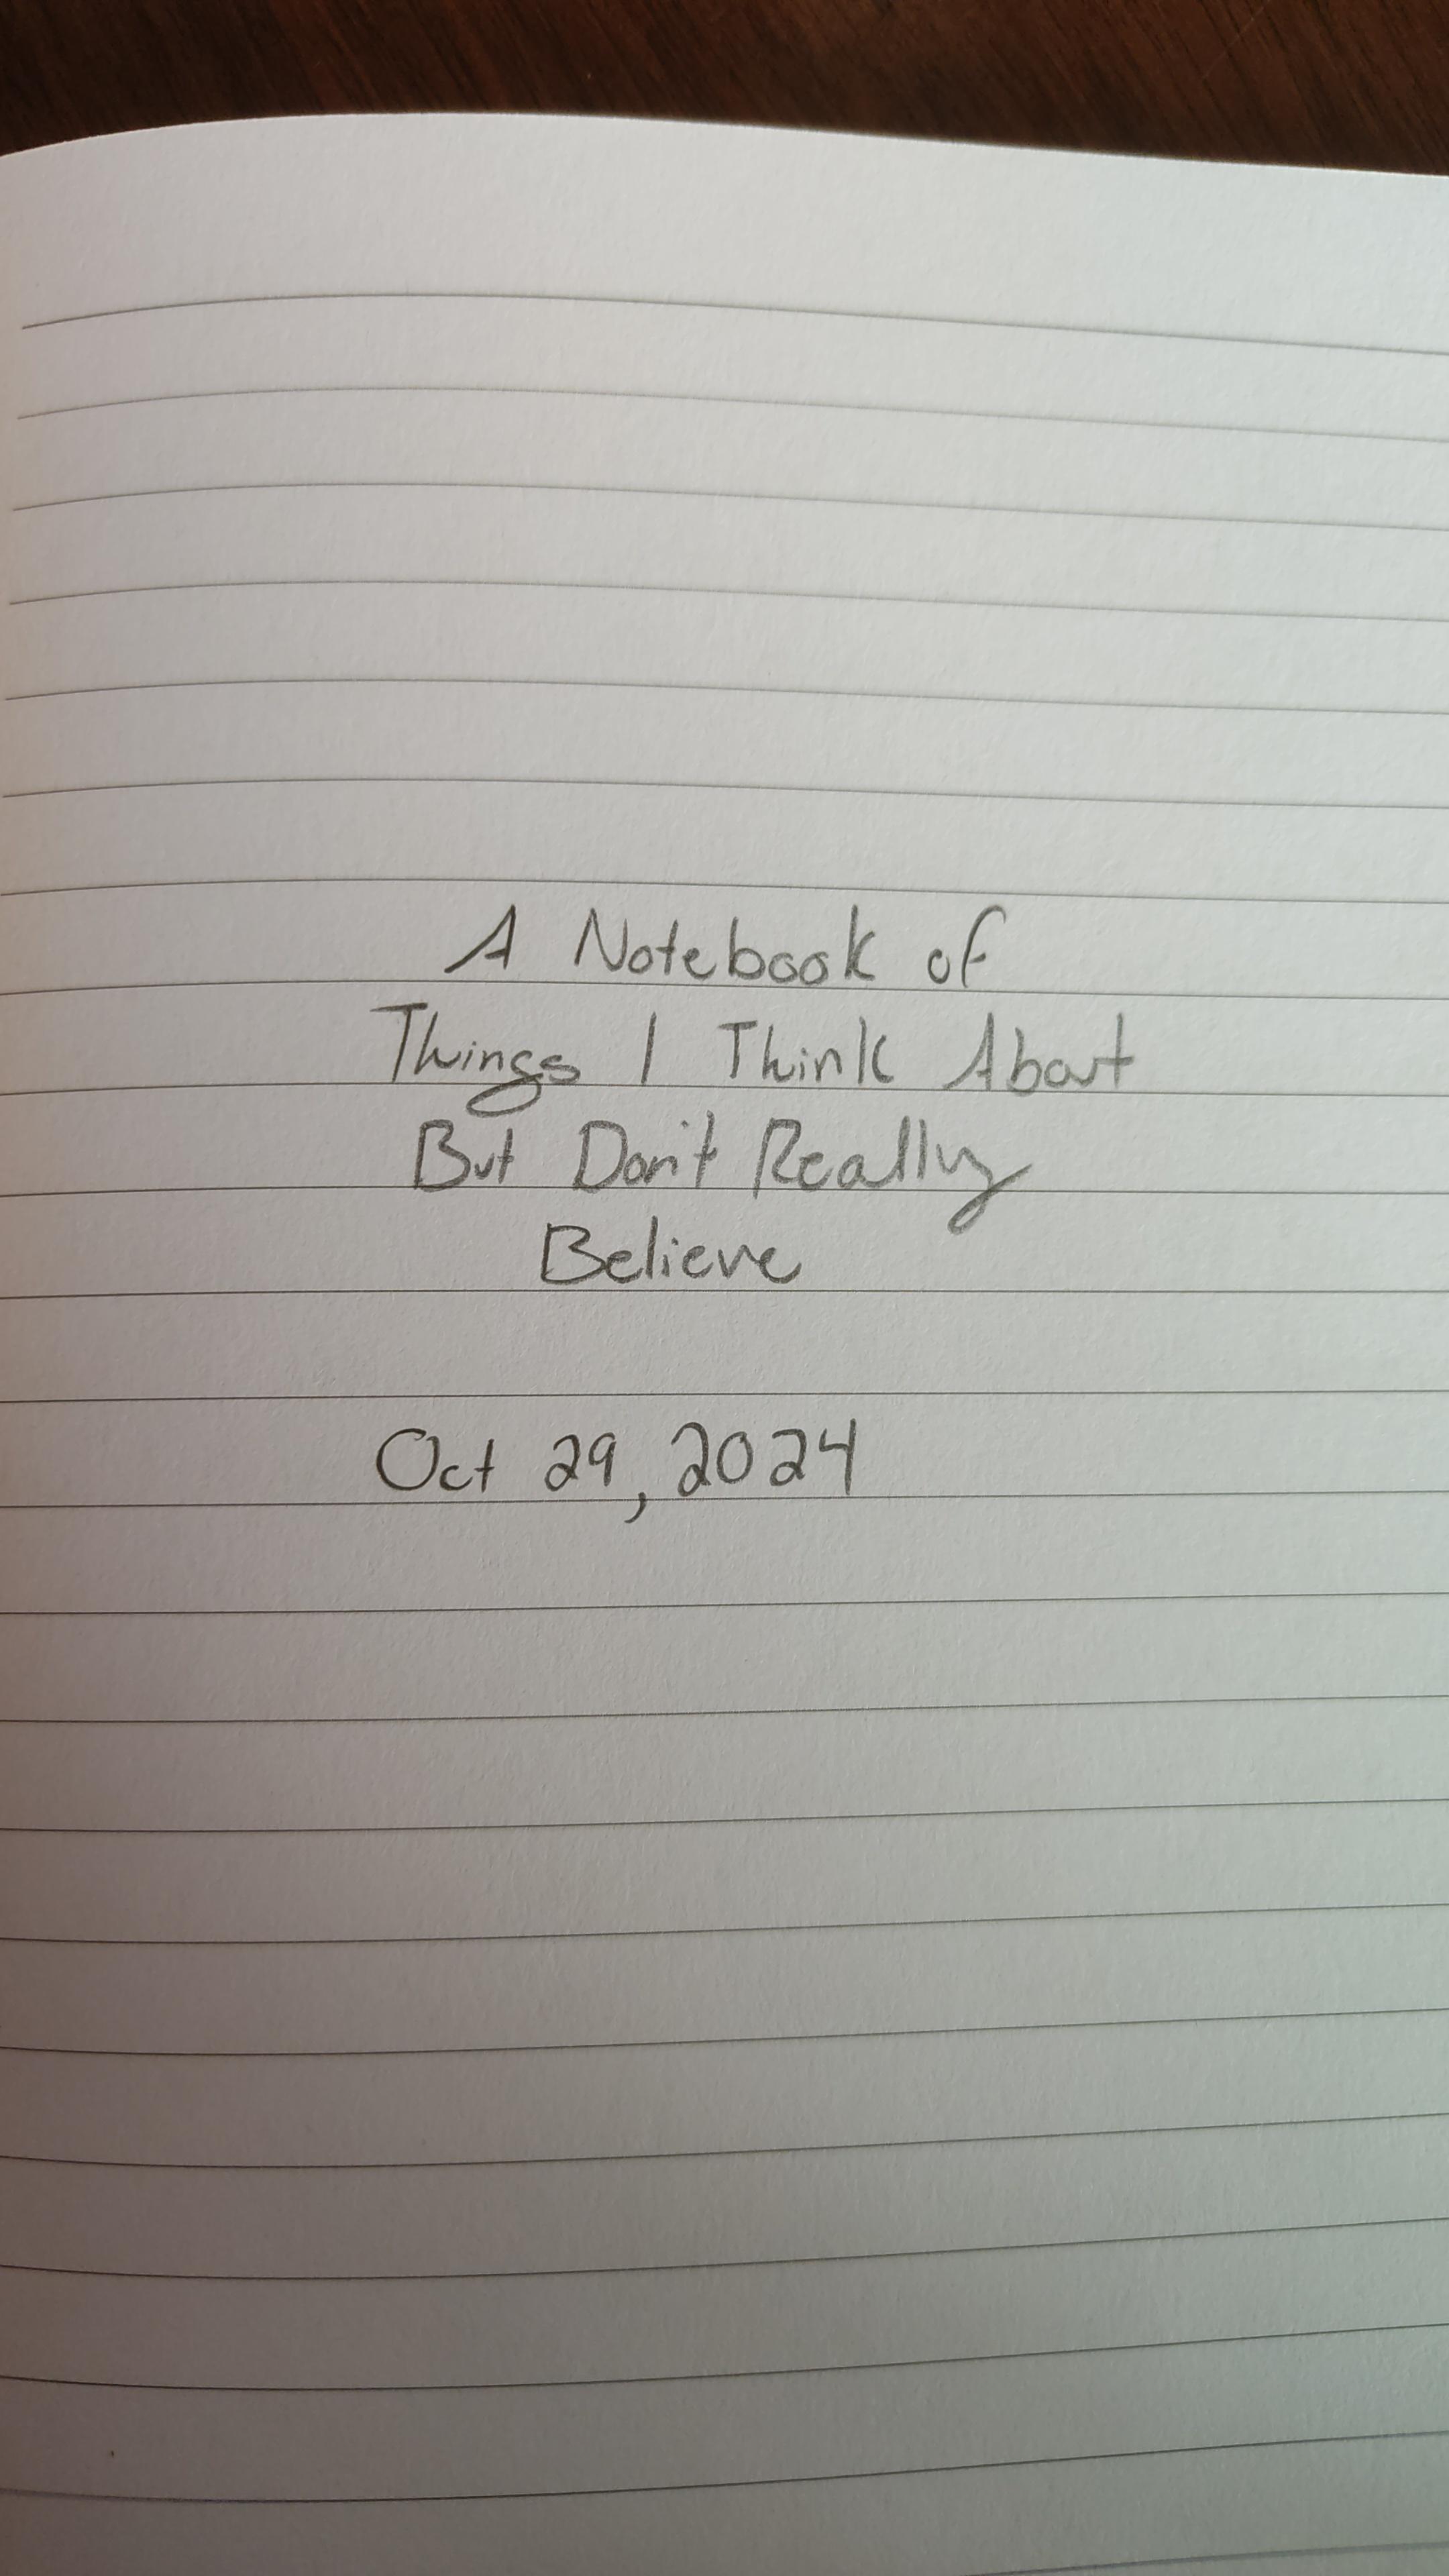 A Notebook of
Things I Think About
But Don't Really
Believe
Oct 29, 2024